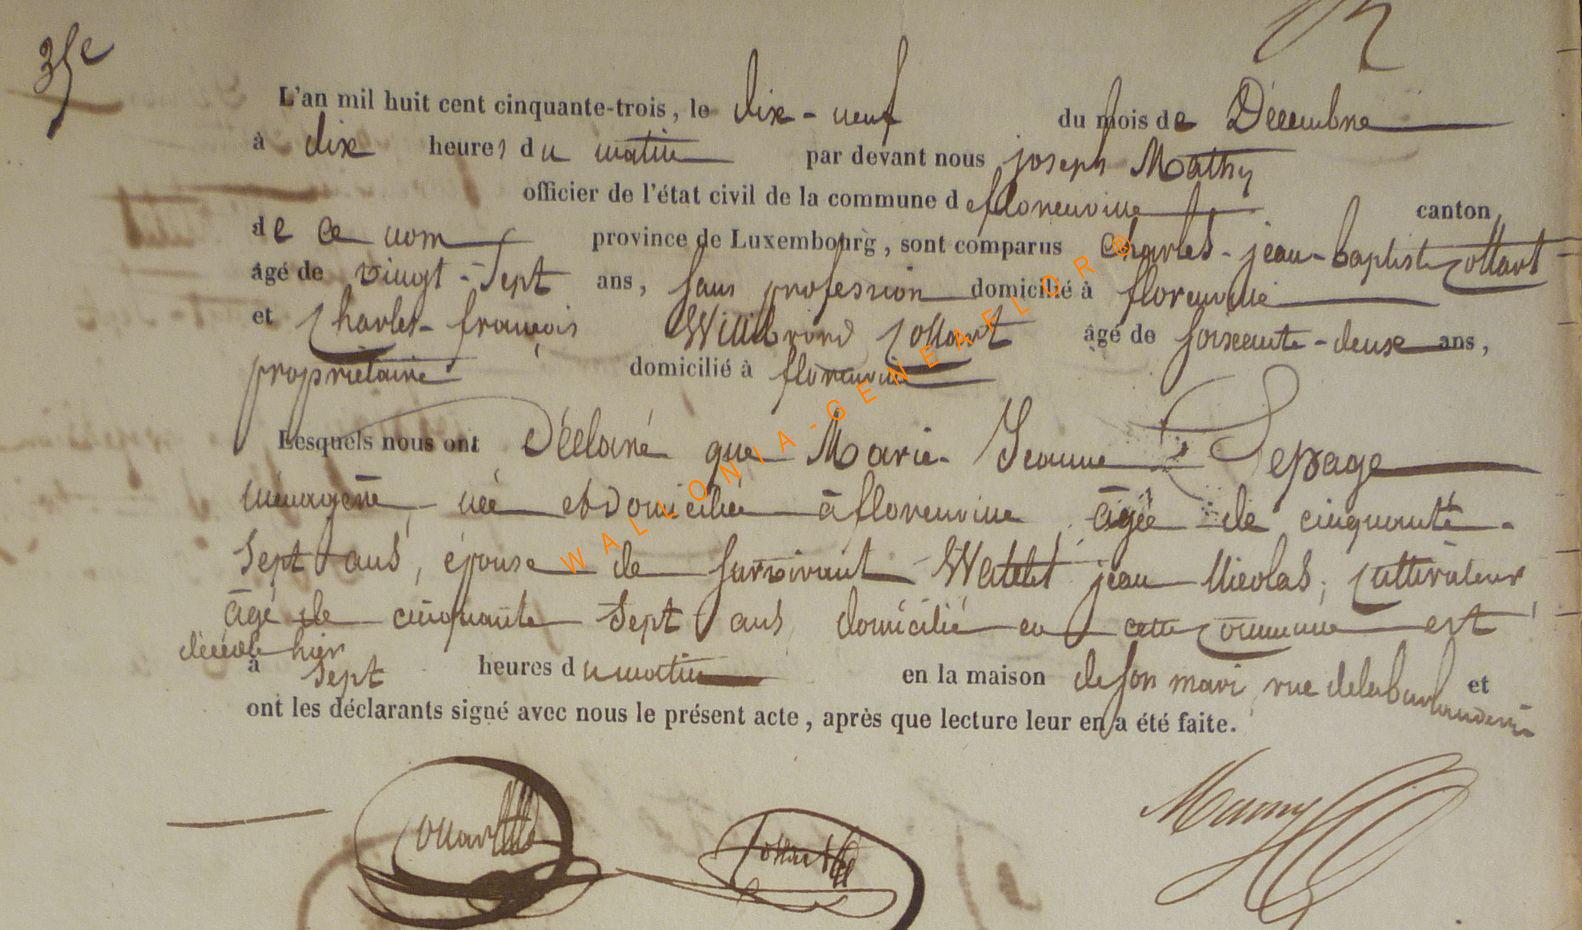 35e
L'an mil huit cent cinquante-trois, le dix-neuf du mois de Décembre
à dix heures du matin par devant nous joseph Mathy
officier de l'état civil de la commune de florenville canton
de ce nom province de Luxembourg, sont comparus Charles-jean-baptiste Collart
âgé de vingt-sept ans, sans profession domicilié à florenville
et Charles-françois Willibrord Collart âgé de soixante-deux ans,
propriétaire domicilié à florenville
Lesquels nous ont Déclaré que Marie-Jeanne Lepage
ménagère, née et domiciliée à florenville âgée de cinquante-
sept ans, épouse de survivant Watelet jean Nicolas, cultivateur,
âgé de cinquante sept ans domicilié en cette commune est
décédée hier
à sept heures du matin en la maison de son mari, rue et
ont les déclarants signé avec nous le présent acte, après que lecture leur en a été faite.
Collart
Collart
WALLONIA-GENEAFLOR®